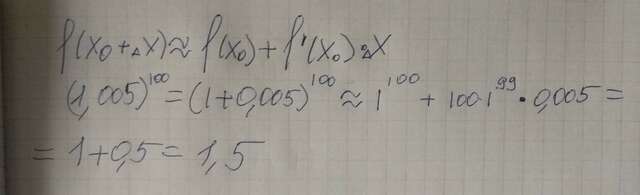 f(x₀+△x)≈f(x₀)+f'(x₀)·△x
(1,005)¹⁰⁰=(1+0,005)¹⁰⁰≈1¹⁰⁰+100·1⁹⁹·0,005=
=1+0,5=1,5